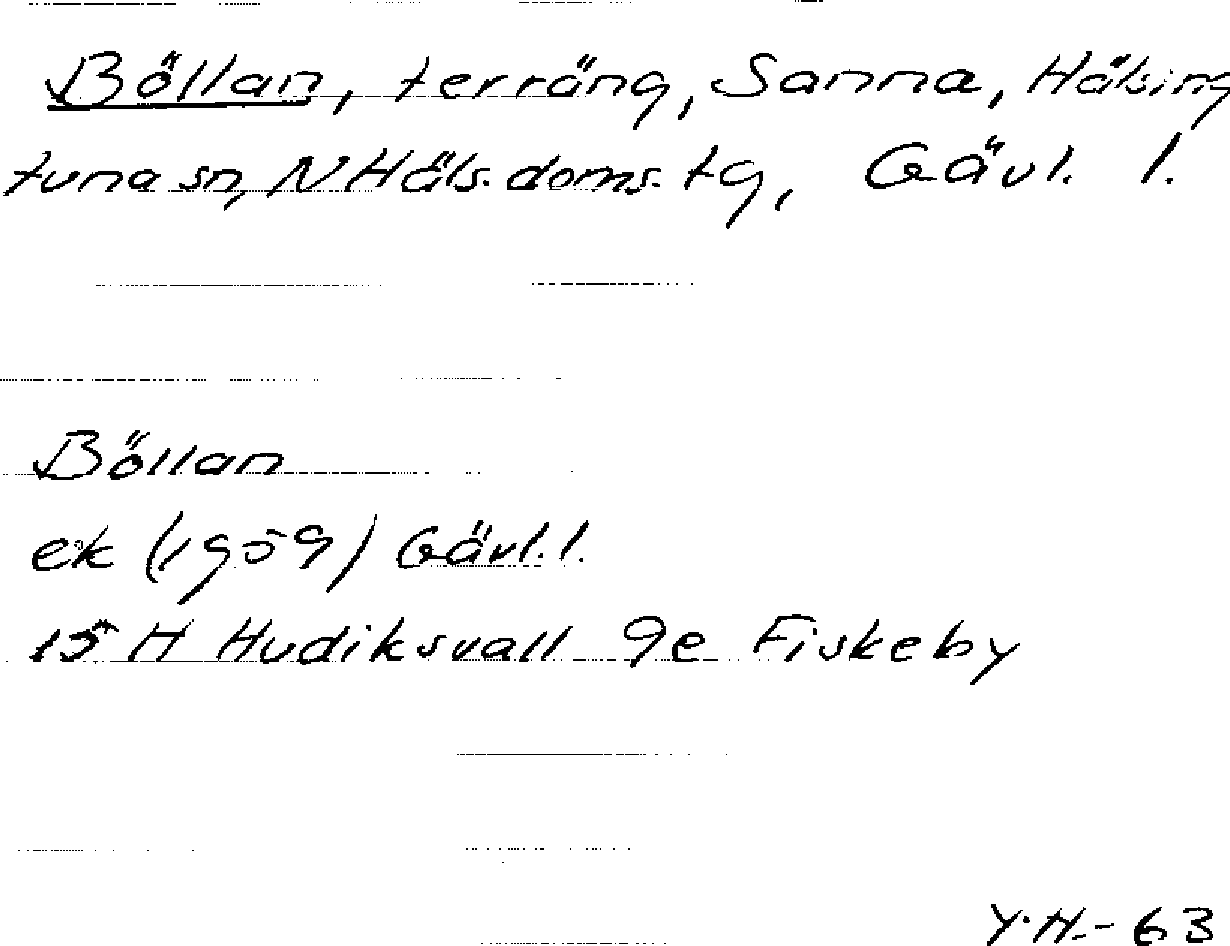 Böllan, terräng, Sanna, Hälsing
tuna sn, N Häls. doms. tg, Gävl. l.
Böllan
ek (1959) Gävl. l.
15 H Hudiksvall 9e Fiskeby
Y.H.-63